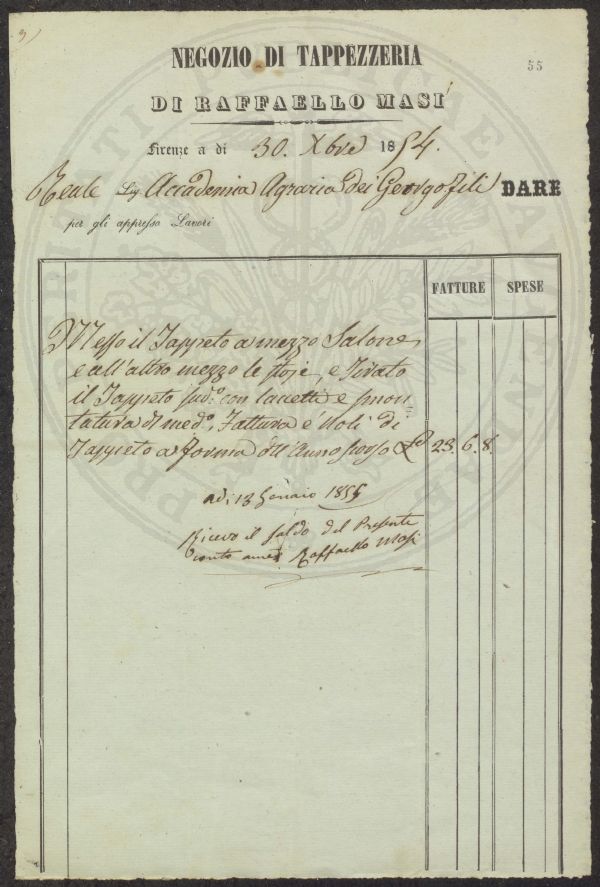 3)
55
NEGOZIO DI TAPPEZZERIA
DI RAFFAELLO MASI
Firenze a dì 30. Xbre 1854.
Reale Sig Accademia Agraria dei Georgofili DARE
per gli appresso Lavori
FATTURE SPESE
Messo il Tappeto a mezzo Salone,
e all'altro mezzo le stoje, e Tirato
il Tappeto sud.o con laccetti e smon
tatura di med.o, Fattura e Noli di
Tappeto a forma dell'Anno scorso 23. 6. 8.
adi 13 Genaio 1855
Ricevo il saldo del Presente
conto Raffaello Masi